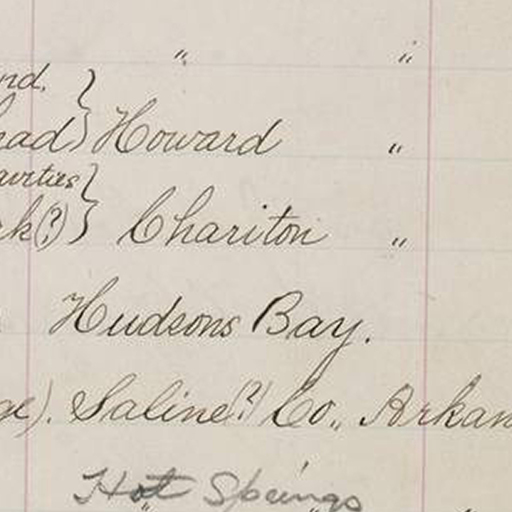 " "
nd. }
ead } Howard "
avities }
rk(?) } Chariton "
Hudsons Bay.
ge). Saline(?) Co., Arkan
Hot Springs